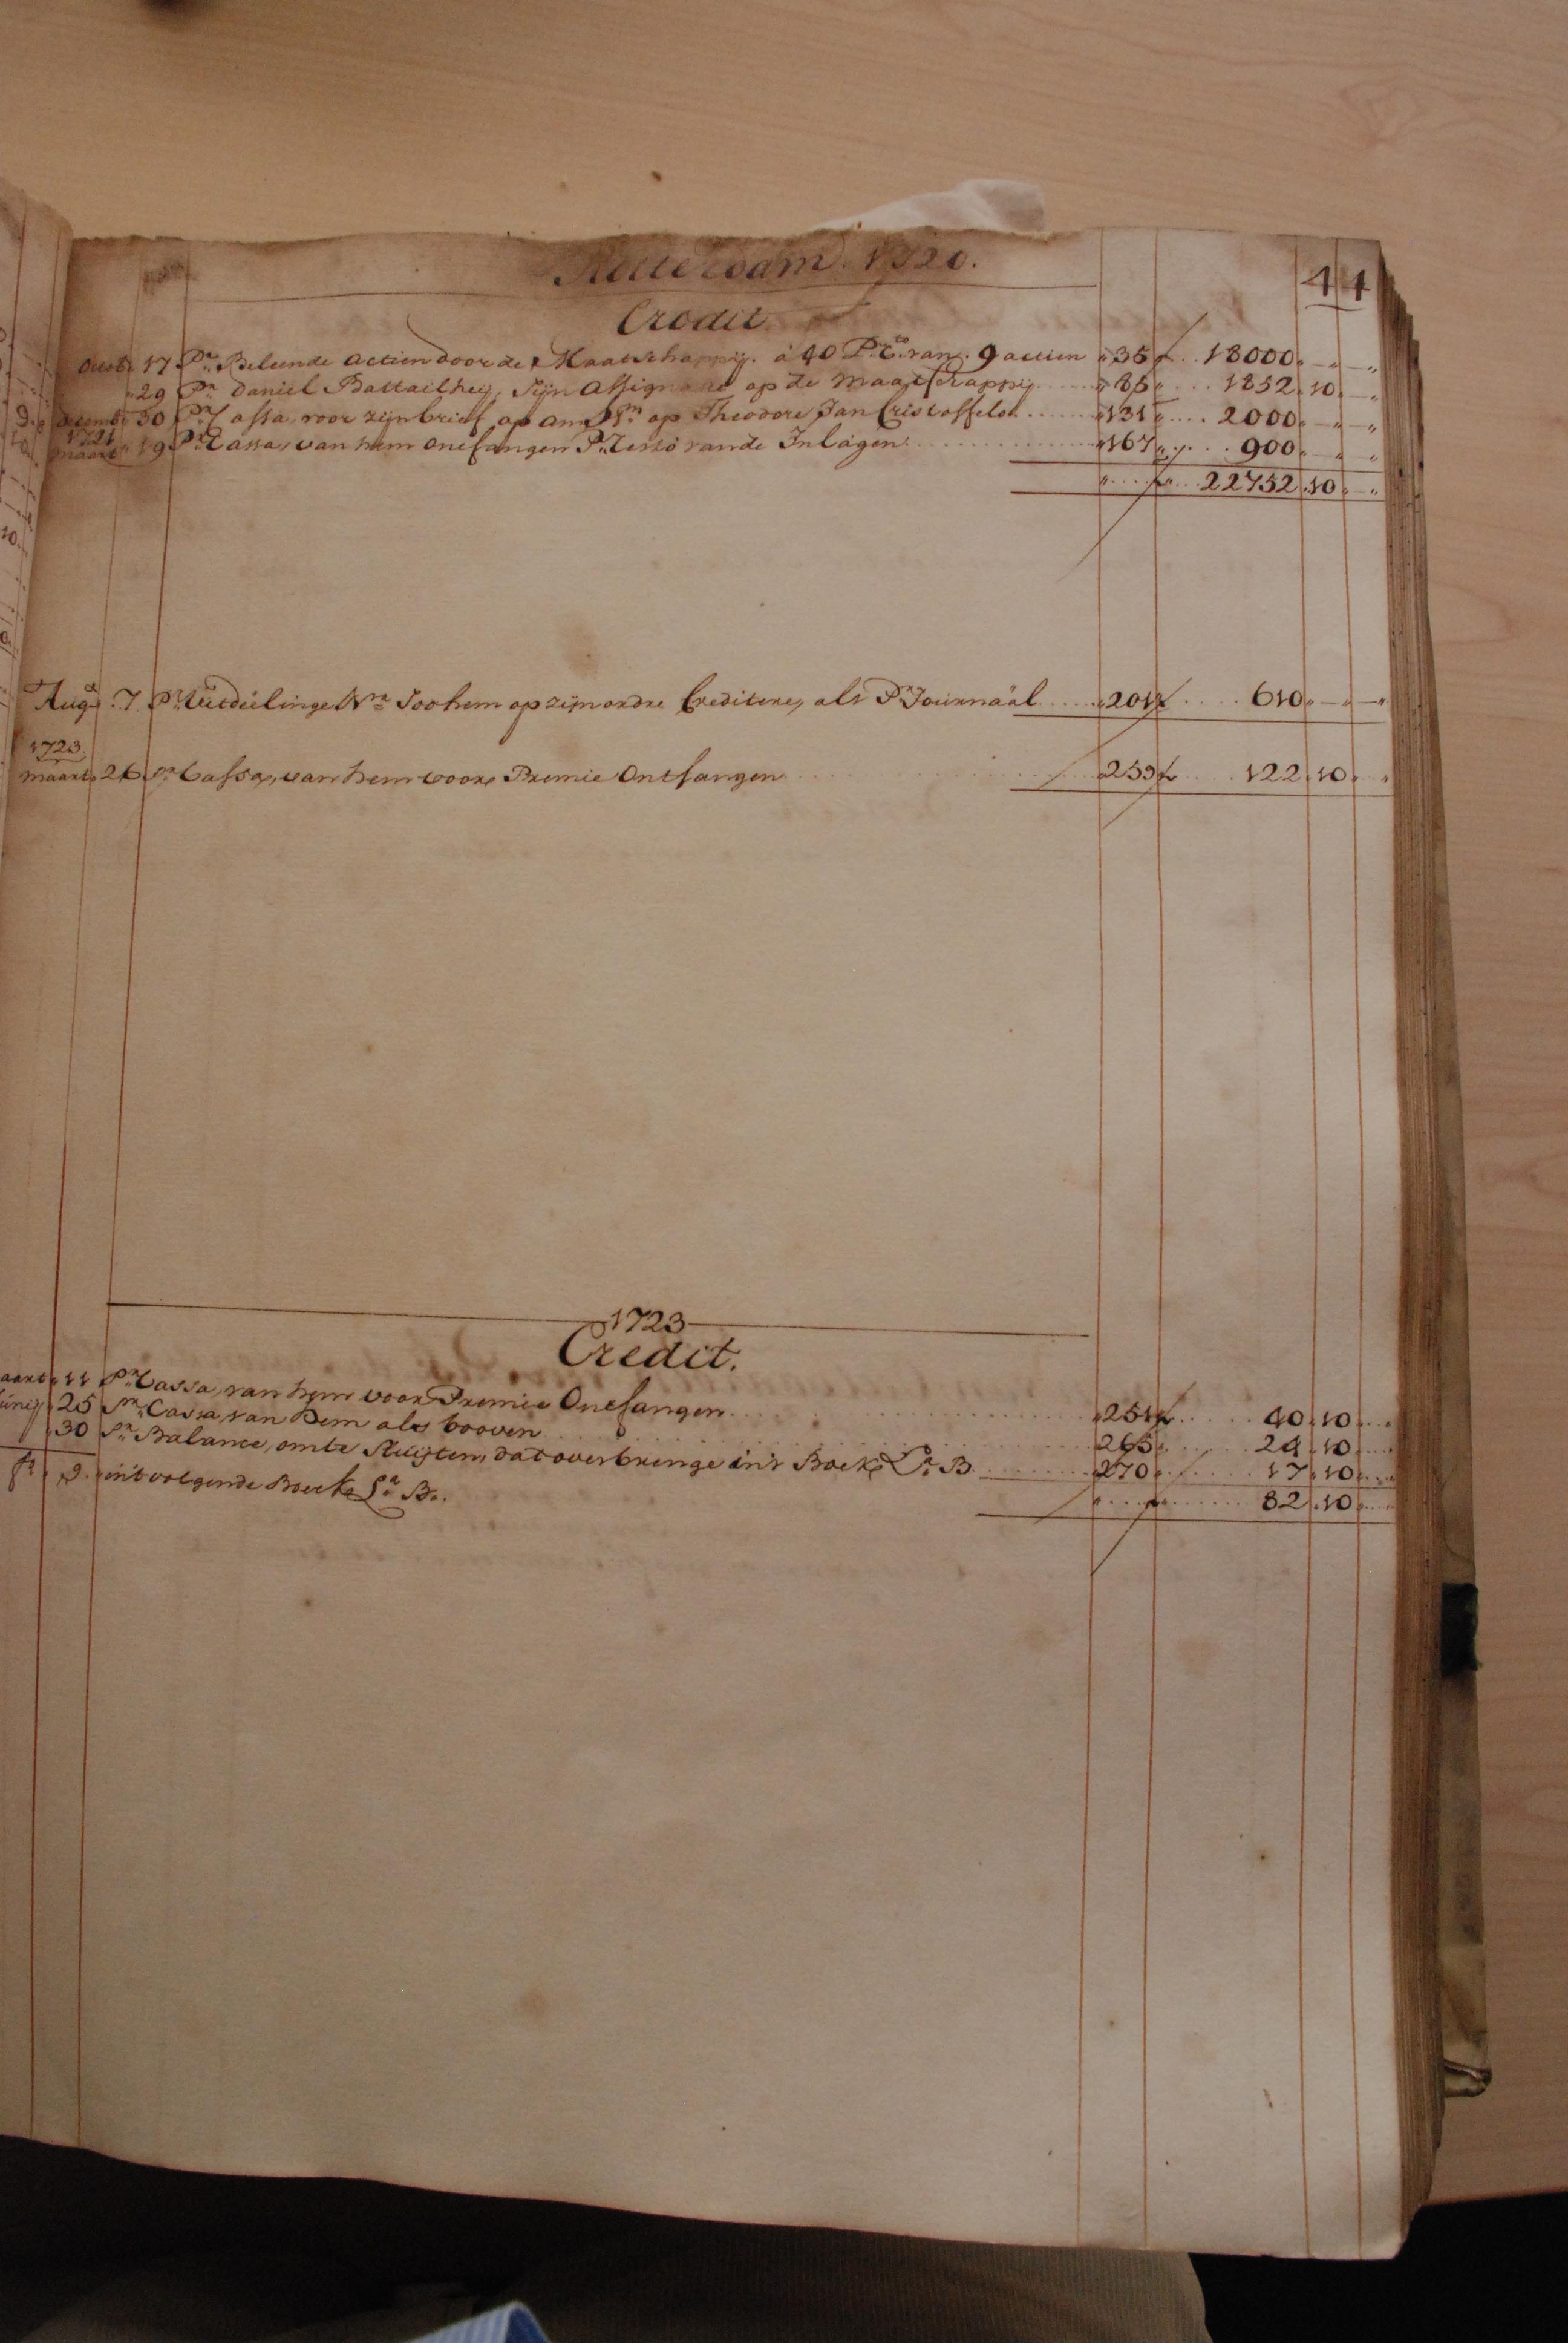 Rotterdam. 1720. 41
Credit
17 Pr. Beleende actien door de Maatschappij. a 40 Pr. Cto. van. 9 actien 35 18000
29 Pr. Daniel Battailheij, Sijn Assignatie op de Maatschappij 85 1852.10
30 Pr. Cassa, voor zijn brief op Amstm. op Theodore Jan Cristoffels. 131 2000
1721
maart 19 Pr. Cassa, van hem ontfangen Pr. Resto vande Inlagen. 167 900
22752.10
Aug. 7 Pr. Uitdeelinge Soo hem op zijn ordre Crediteere, als Pr. Journaäl 201 610
1723.
maart 26 Pr. Cassa, van hem voor Premie Ontfangen 259 122.10
1723
Credit.
11 Pr. Cassa, van hem voor Premie Ontfangen 251 40.10
25 Pr. Cassa, van Dem als booven 265 24.10
30 Pr. Balance, om te Sluijten, dat overbrenge in't Boek La. B 270 17.10
9. in't volgende Boek La. B. 82.10